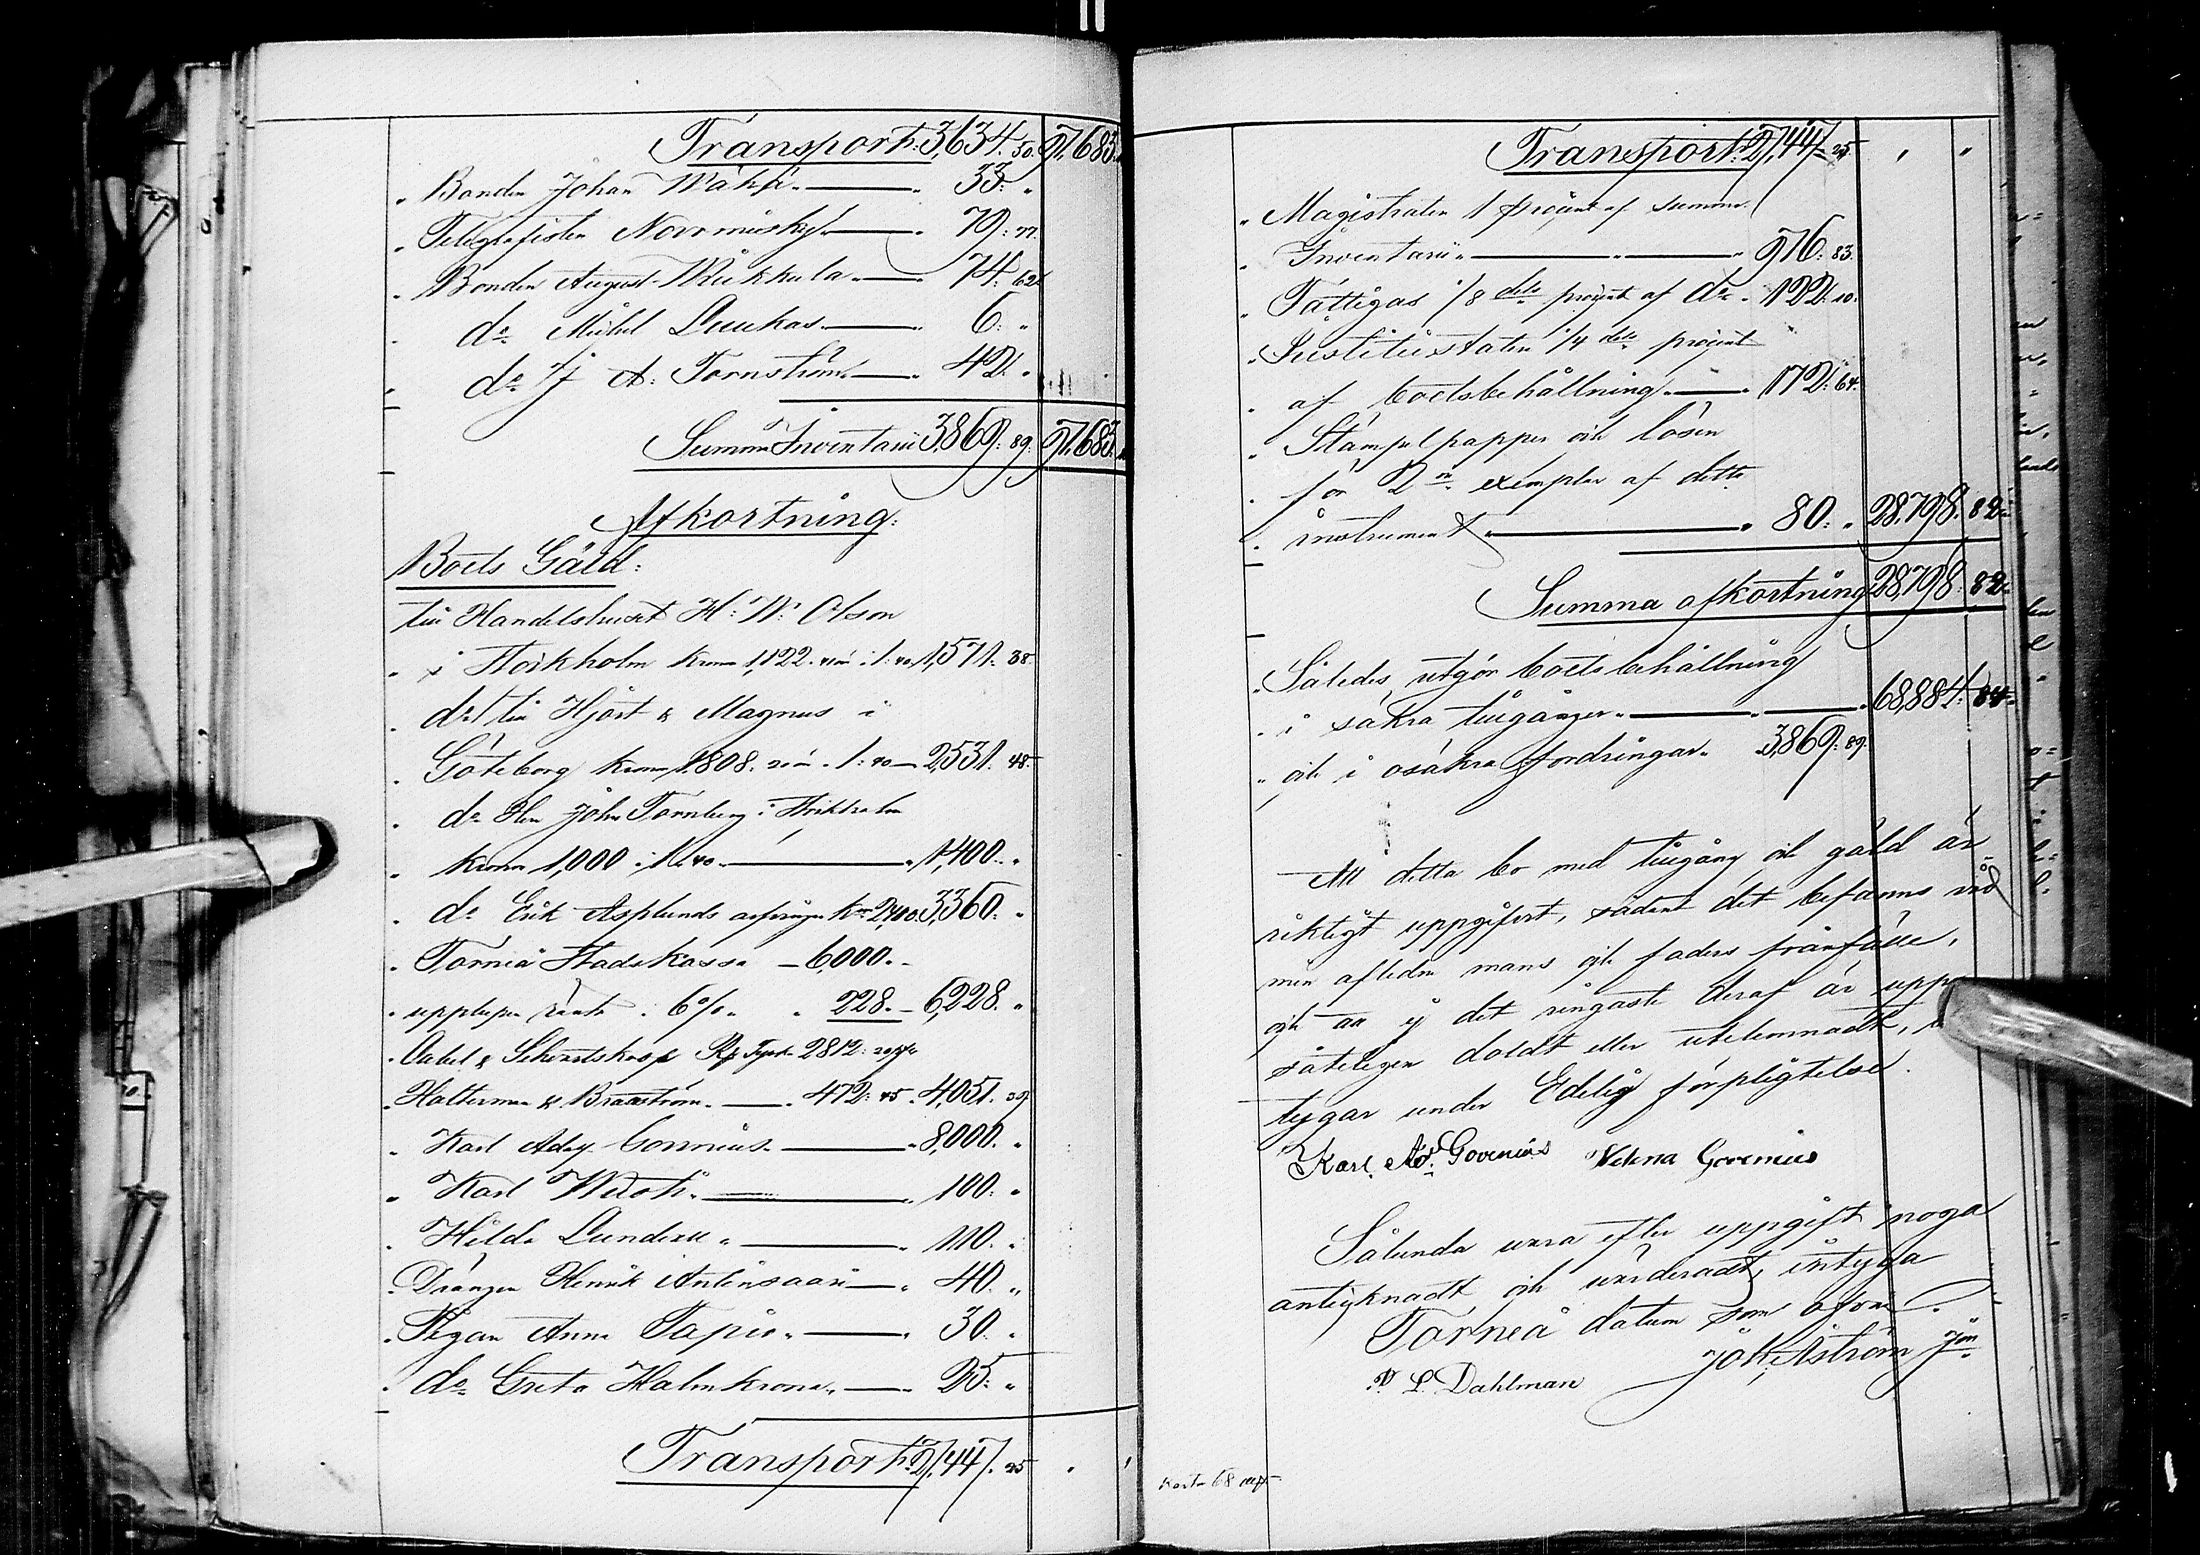 Transport: 3,634. 50. 97,683.
„ Bonden Johan Wähä „ — „ 33: „
„ Telegrafisten Novomiisky — „ 79: 77.
„ Bonden August Mikkula „ — „ 74: 62.
„ do Mickel Luukas — „ 6: „
„ do J A: Törnström — „ 42. „
Summa Inventarii 3,869: 89. 97,683.
Afkortning:
Boets Gäld:
till Handelshuset H: W: Olson
„ i Stockholm kronor 1,122. 41 ore i 1: 40. 1,571. 38.
„ do till Hjört & Magnus i
„ Göteborg kronor 1,808. 20 i 1: 40 — 2,531. 48.
„ do Herr John Törnberg i Stockholm
„ kronor 1,000 i 1: 40. — „ 1,400. „
„ do Erik Asplunds Kr 2,400. 3,360. „
„ Torneå Stadskassa — 6,000. —
„ upplupen ränta 6 % „ „ 228. — 6,228. „
„ & Rf Tysk 2812:
„ Halterman & Braaström. — „ 472: 45 „ 4,051. 39
„ Karl Adolf Govenius — „ 8,000. „
„ Karl — „ 100. „
„ Hilda Lundell „ — „ 110. „
„ Drängen Henrik Antinsaari — „ 40. „
„ Pigan Anna Tapio „ — „ 30. „
„ do Greta Halmkrona „ — „ 25: „
Transport: 27,447. 25 „ „
Transport: 27,447. 25 „ „
„ Magistraten 1 procent af summa
„ Inventarii „ — „ — 976: 83.
„ Fattigas 1/8 dels procent af do „ 122. 10.
„ Justitiestaten 1/4 dels procent
„ af boets behållning „ — „ 172: 64.
„ Stämpelpapper och lösen
„ för 2ne exemplar af detta
„ instrument „ — „ 80: „ 28,798. 82.
Summa afkortning 28,798. 82.
„ Således utgör boets behållning
„ i säkra tillgångar „ — „ — „ 68,884. 84.
„ och i osäkra fordringar „ 3,869: 89.
Att detta bo med tillgång och gäld är
riktigt uppgifvet, sådant det befanns vid
min aflidne mans och faders frånfälle,
och att ej det ringaste deraf är upp
såteligen doldt eller utelemnadt,
tygar under Edelig förpligtelse.
Karl Ad. Govenius Helena Govenius
Sålunda vara efter uppgift noga
antecknadt och värderadt, intyga
Torneå datum som ofvan.
Joh: Åström Jon
P L. Dahlman
Karta 68